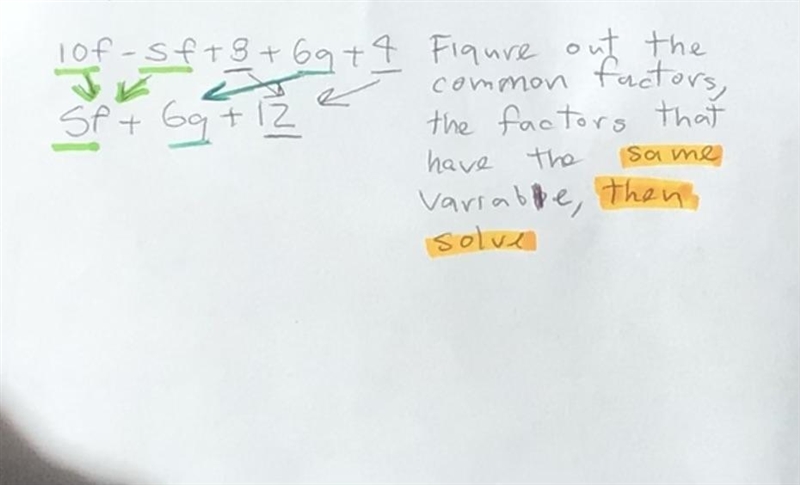 10f - 5f + 8 + 6g + 4
5f + 6g + 12
Figure out the
common factors,
the factors that
have the same
variable, then
solve